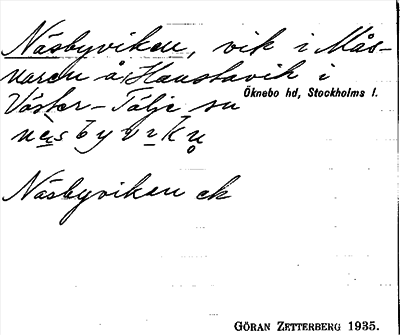 Näsbyviken, vik i Mås-
naren å Hanstavik i
Väster-Tälje sn
Öknebo hd, Stockholms l.
Näsbyviken ek
GÖRAN ZETTERBERG 1935.